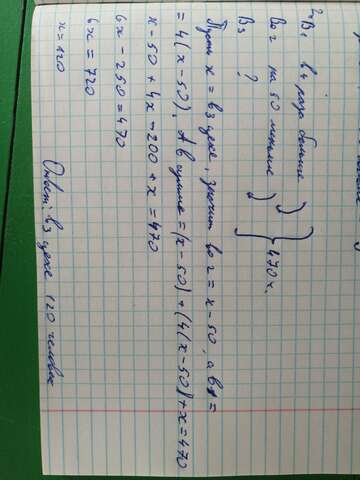 В1 в 4 раза больше
Во 2 на 50 меньше } 470 ч.
В3 ?
Пусть x = в 3 цехе, значит во 2 = x - 50, а в 1 =
= 4(x - 50). А в сумме = (x - 50) + (4(x - 50)) + x = 470
x - 50 + 4x - 200 + x = 470
6x - 250 = 470
6x = 720
x = 120
Ответ: в 3 цехе 120 человек